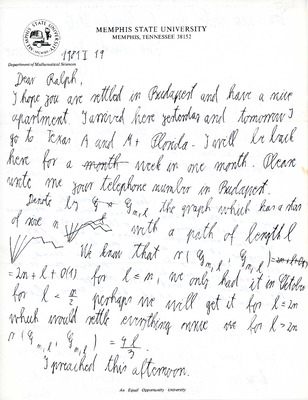 MEMPHIS STATE UNIVERSITY
MEMPHIS, TENNESSEE 38152
Department of Mathematical Sciences
1987 I 19
Dear Ralph,
I hope you are settled in Budapest and have a nice
apartment. I arrived here yesterday and tomorrow I
go to Texas A and M + Florida. I will be back
here for a month week in one month. Please
write me your telephone number in Budapest.
Denote by G_{m,l} the graph which has a star
of size n with a path of length l
We know that r(G_{m,l}, G_{m,l})
= 2n + l + O(1) for l ≤ n, we only had it in October
for l < n/2 perhaps we will get it for l = 2n
which would settle everything since for l > 2n
r(G_{m,l}, G_{m,l}) = 4l/3.
I preached this afternoon.
An Equal Opportunity University